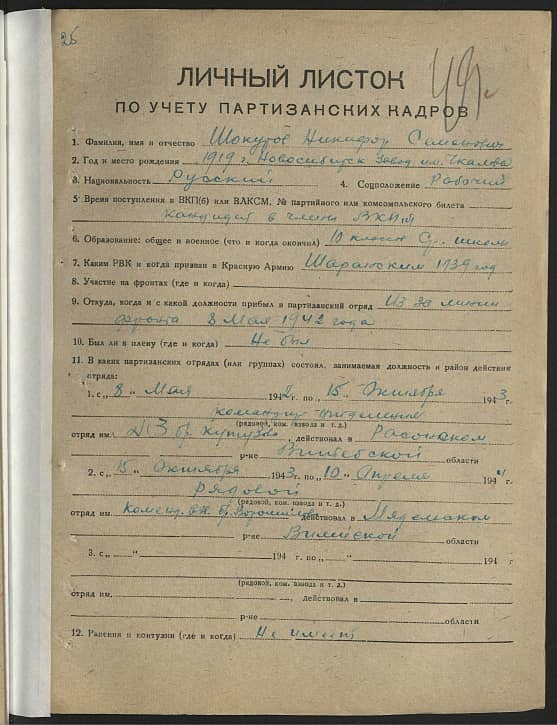 26
ЛИЧНЫЙ ЛИСТОК
ПО УЧЕТУ ПАРТИЗАНСКИХ КАДРОВ
1. Фамилия, имя и отчество Шокутов Никифор Самойлович
2. Год и место рождения 1919 г. Новосибирск Завод им. Чкалова
3. Национальность Русский 4. Соцположение Рабочий
5. Время поступления в ВКП(б) или ВЛКСМ, № партийного или комсомольского билета
Кандидат в члены
6. Образование: общее и военное (что и когда окончил) 10 классов Ср. школы
7. Каким РВК и когда призван в Красную Армию 1939 год
8. Участие на фронтах (где и когда)
9. Откуда, когда и с какой должности прибыл в партизанский отряд Из за линии
фронта 8 Мая 1942 года
10. Был ли в плену (где и когда) Не был
11. В каких партизанских отрядах (или группах) состоял, занимаемая должность и район действие
отряда:
1. с „8„ Мая 1942 г. по „15„ Октября 1943 г.
командир отделения
(рядовой, ком. взвода и т. д.)
отряд им. №3 бр. Кутузова, действовал в Расонском
р-не Витебской области
2. с „15„ Октября 1943 г. по „10„ Апреля 194
рядовой
(рядовой, ком. взвода и т. д.)
отряд им. Коменд. вз. бр. Ворошилова действовал в Мядельском
р-не Вилейской области
3. с „ „ 194 г. по „ „ 194 г
(рядовой, ком. взвода и т. д.)
отряд им. , действовал в
р-не области
12. Ранения и контузии (где и когда) Не имеет